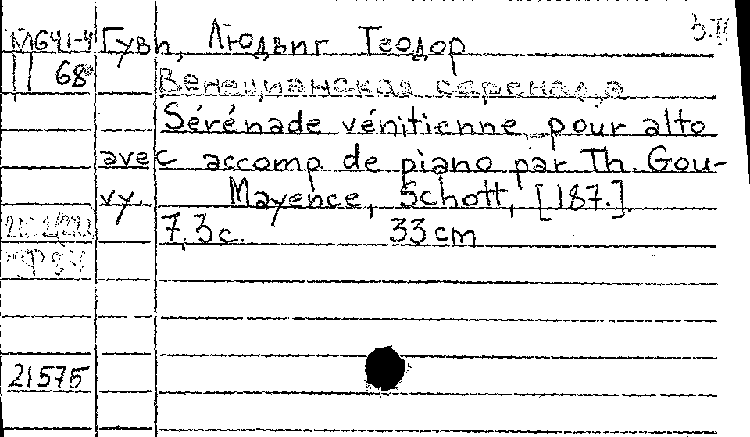 М641-4 Гуви, Людвиг Теодор
68
Венецианская серенада
Sérénade vénitienne pour alto
avec accomp de piano par Th. Gou-
vy. Mayence, Schott, [187.].
7,3 с. 33 cm
21575